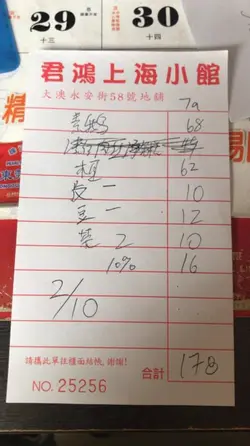 29 30
十三 十四
君鴻上海小館
大澳永安街58號地舖
7a
素鵝 68
粗 62
長一 10
豆一 12
茶 2 10
10% 16
2/10
請攜此單往櫃面結帳,謝謝!
合計 178
NO. 25256